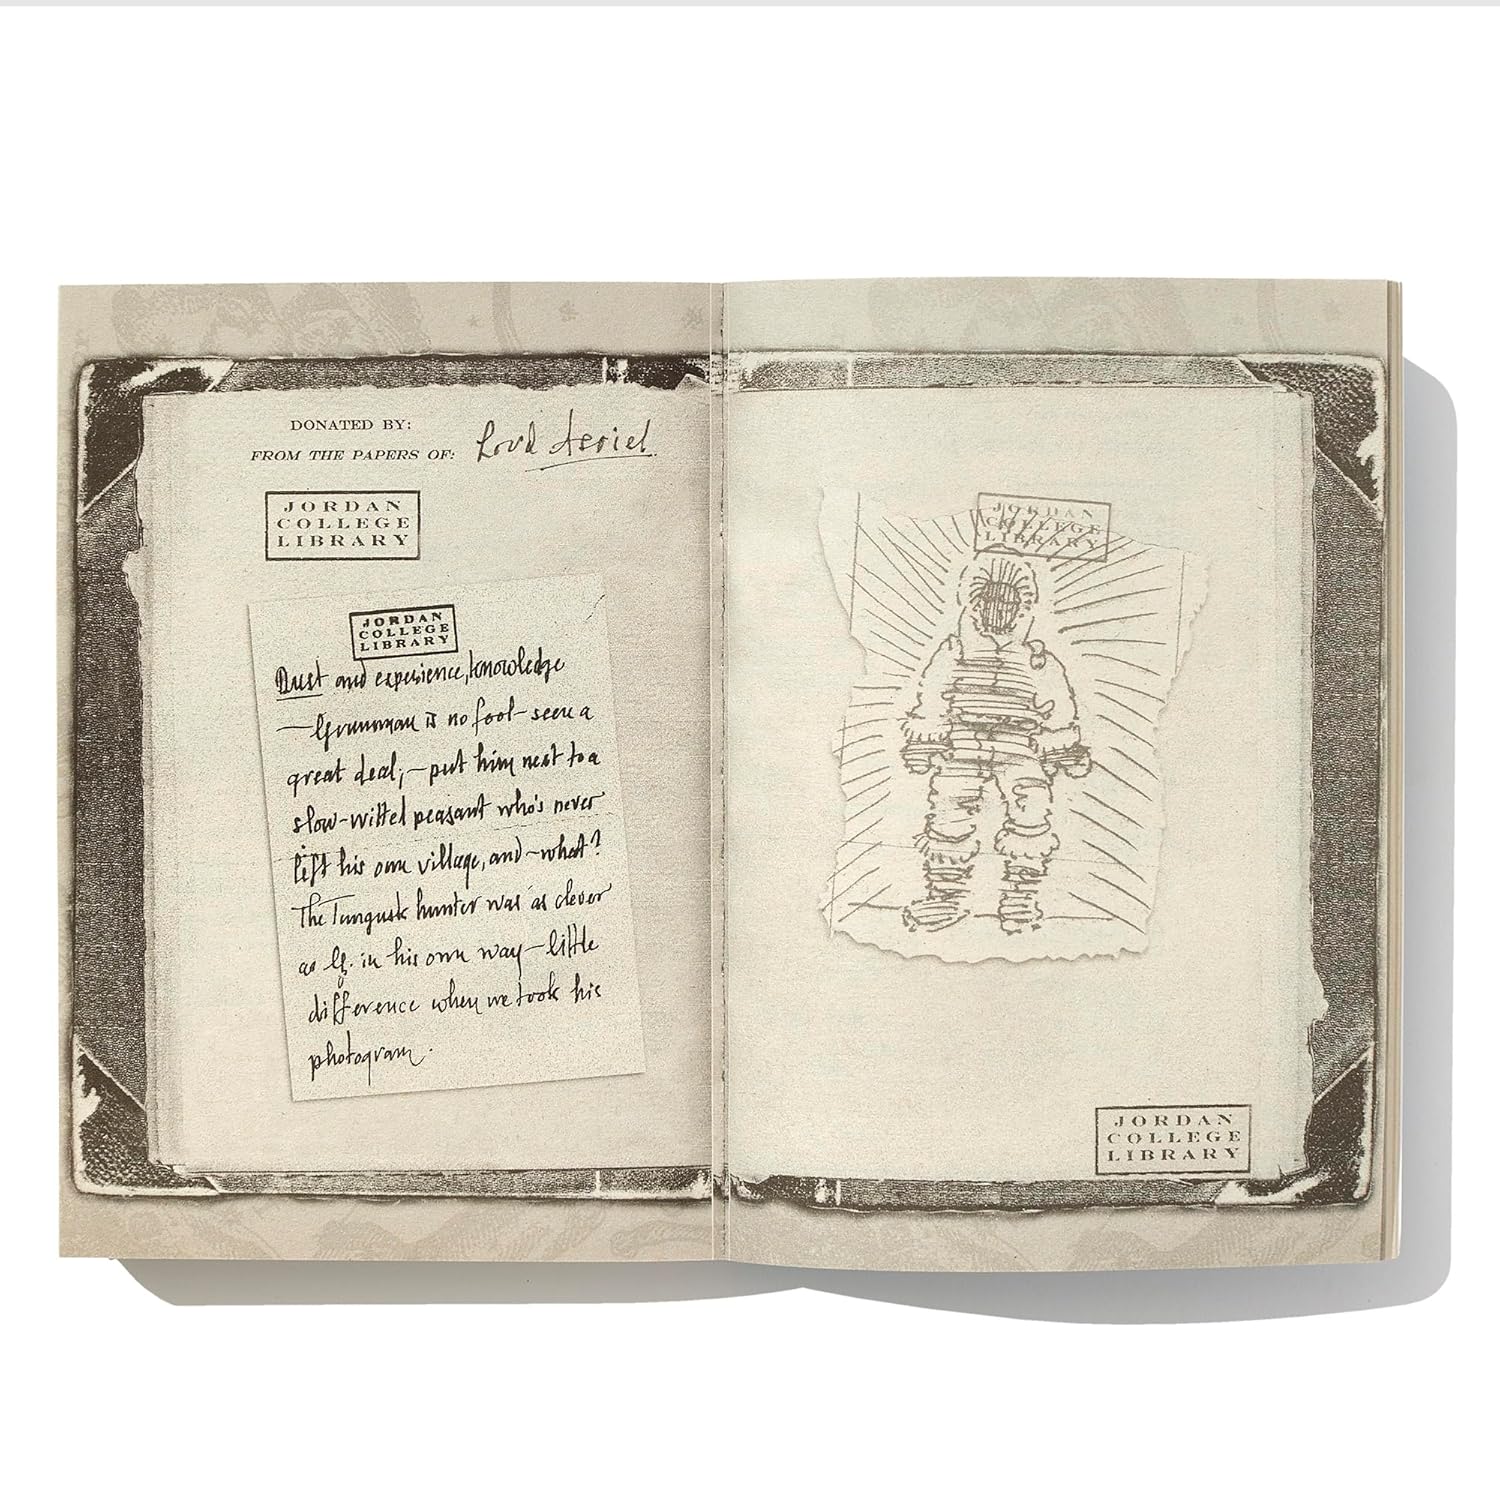 DONATED BY:
FROM THE PAPERS OF: Lord Asriel
JORDAN
COLLEGE
LIBRARY
JORDAN
COLLEGE
LIBRARY
Dust and experience, knowledge
—Grumman is no fool—seen a
great deal;—put him next to a
slow-witted peasant who's never
left his own village, and—what?
The Tungusk hunter was as clever
as G. in his own way—little
difference when we took his
photogram.
JORDAN
COLLEGE
LIBRARY
JORDAN
COLLEGE
LIBRARY